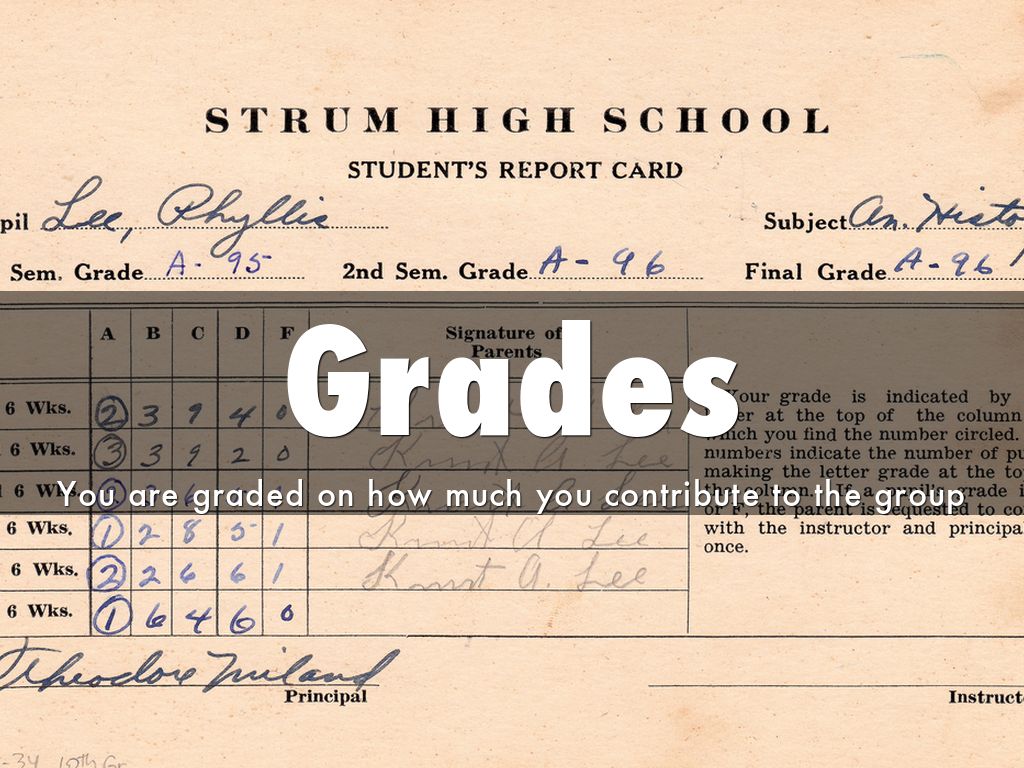 STRUM HIGH SCHOOL
STUDENT'S REPORT CARD
pil Lee, Phyllis Subject An. Histo
Sem. Grade A - 95 2nd Sem. Grade A - 96 Final Grade A - 96
A B C D F Signature of
Parents
6 Wks. 2 3 9 4 0
6 Wks. 3 3 9 2 0 Knut A Lee
6 Wks.
6 Wks. 1 2 8 5 1 Knut A Lee
6 Wks. 2 2 6 6 1 Knut A. Lee
6 Wks. 1 6 4 6 0
Grades
You are graded on how much you contribute to the group
Your grade is indicated by
at the top of the column
which you find the number circled.
numbers indicate the number of pu
making the letter grade at the to
the column. If a pupil's grade i
or F, the parent is requested to co
with the instructor and principa
once.
Theodore
Principal Instructo
-34 10th Gr